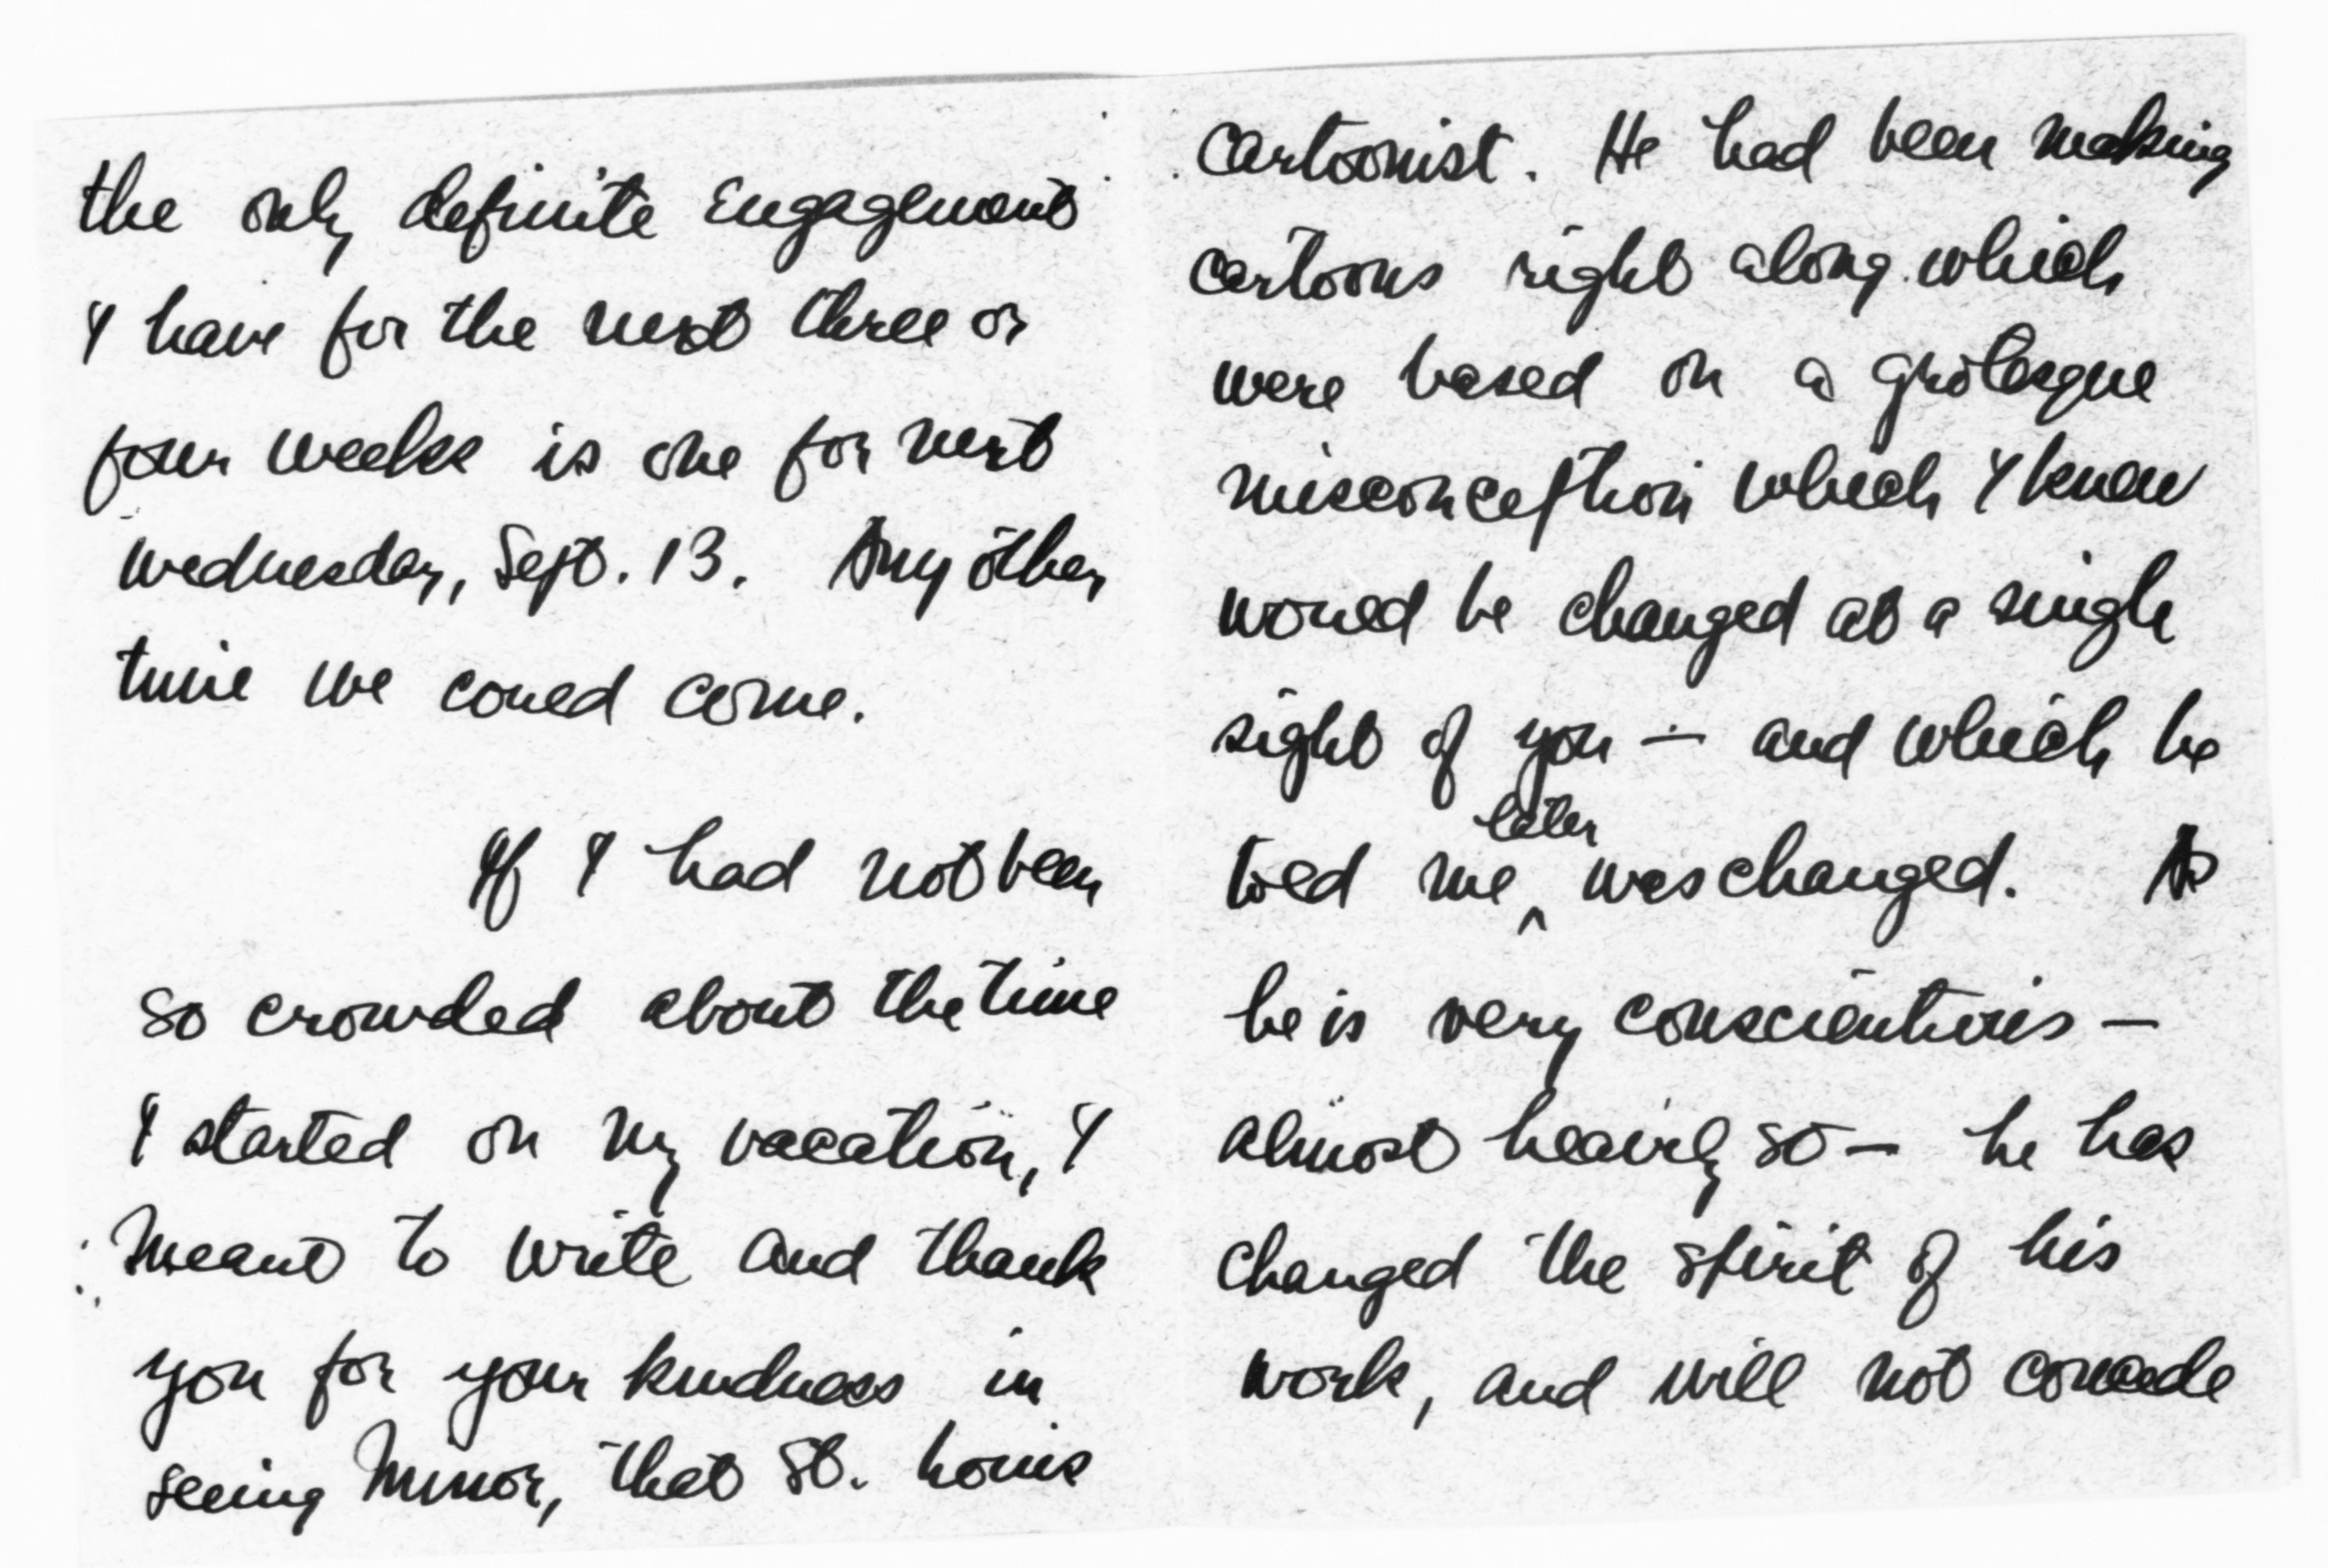 the only definite engagement
I have for the next three or
four weeks is one for next
Wednesday, Sept. 13. Any other
time we could come.
If I had not been
so crowded about the time
I started on my vacation, I
meant to write and thank
you for your kindness in
seeing Minor, that St. Louis
cartoonist. He had been making
cartoons right along which
were based on a grotesque
misconception which I knew
would be changed at a single
sight of you — and which he
later
told me ^ was changed. As
he is very conscientious —
almost heavily so — he has
changed the spirit of his
work, and will not concede